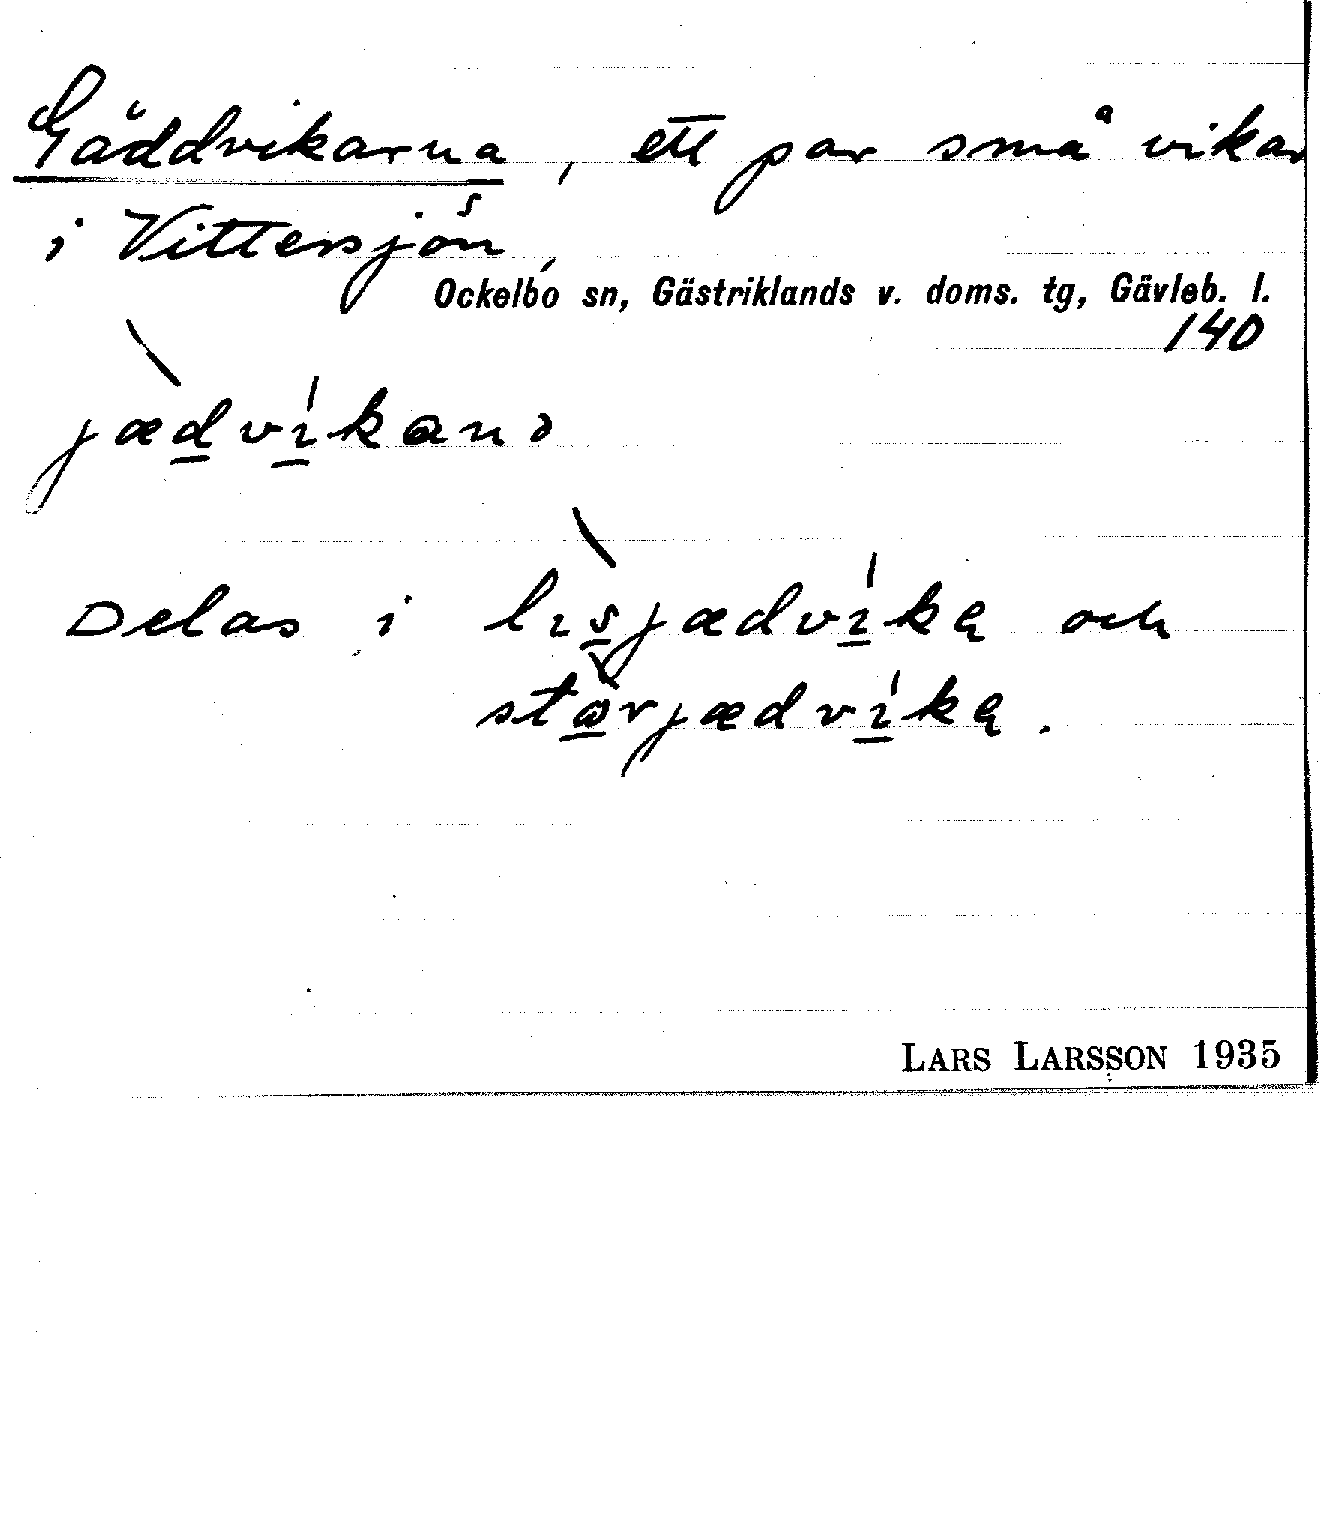 Gäddvikarna, ett par små vikar
i Vittersjön,
Ockelbo sn, Gästriklands v. doms. tg, Gävleb. l.
140
jædvikanə
Delas i lisjædvika och
storjædvika.
LARS LARSSON 1935